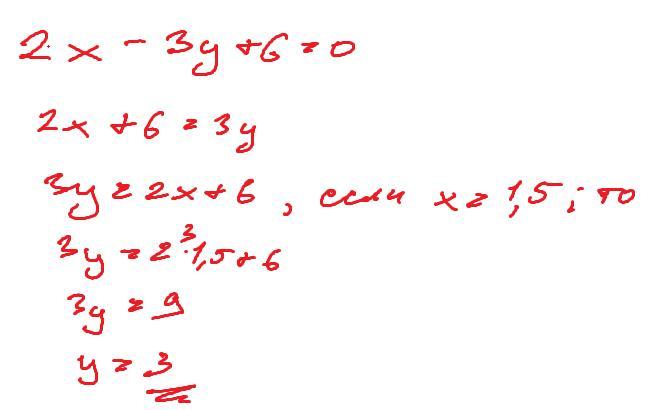 2x - 3y + 6 = 0
2x + 6 = 3y
3y = 2x + 6, если x = 1,5; то
3y = 2 · 1,5 + 6
3
3y = 9
y = 3